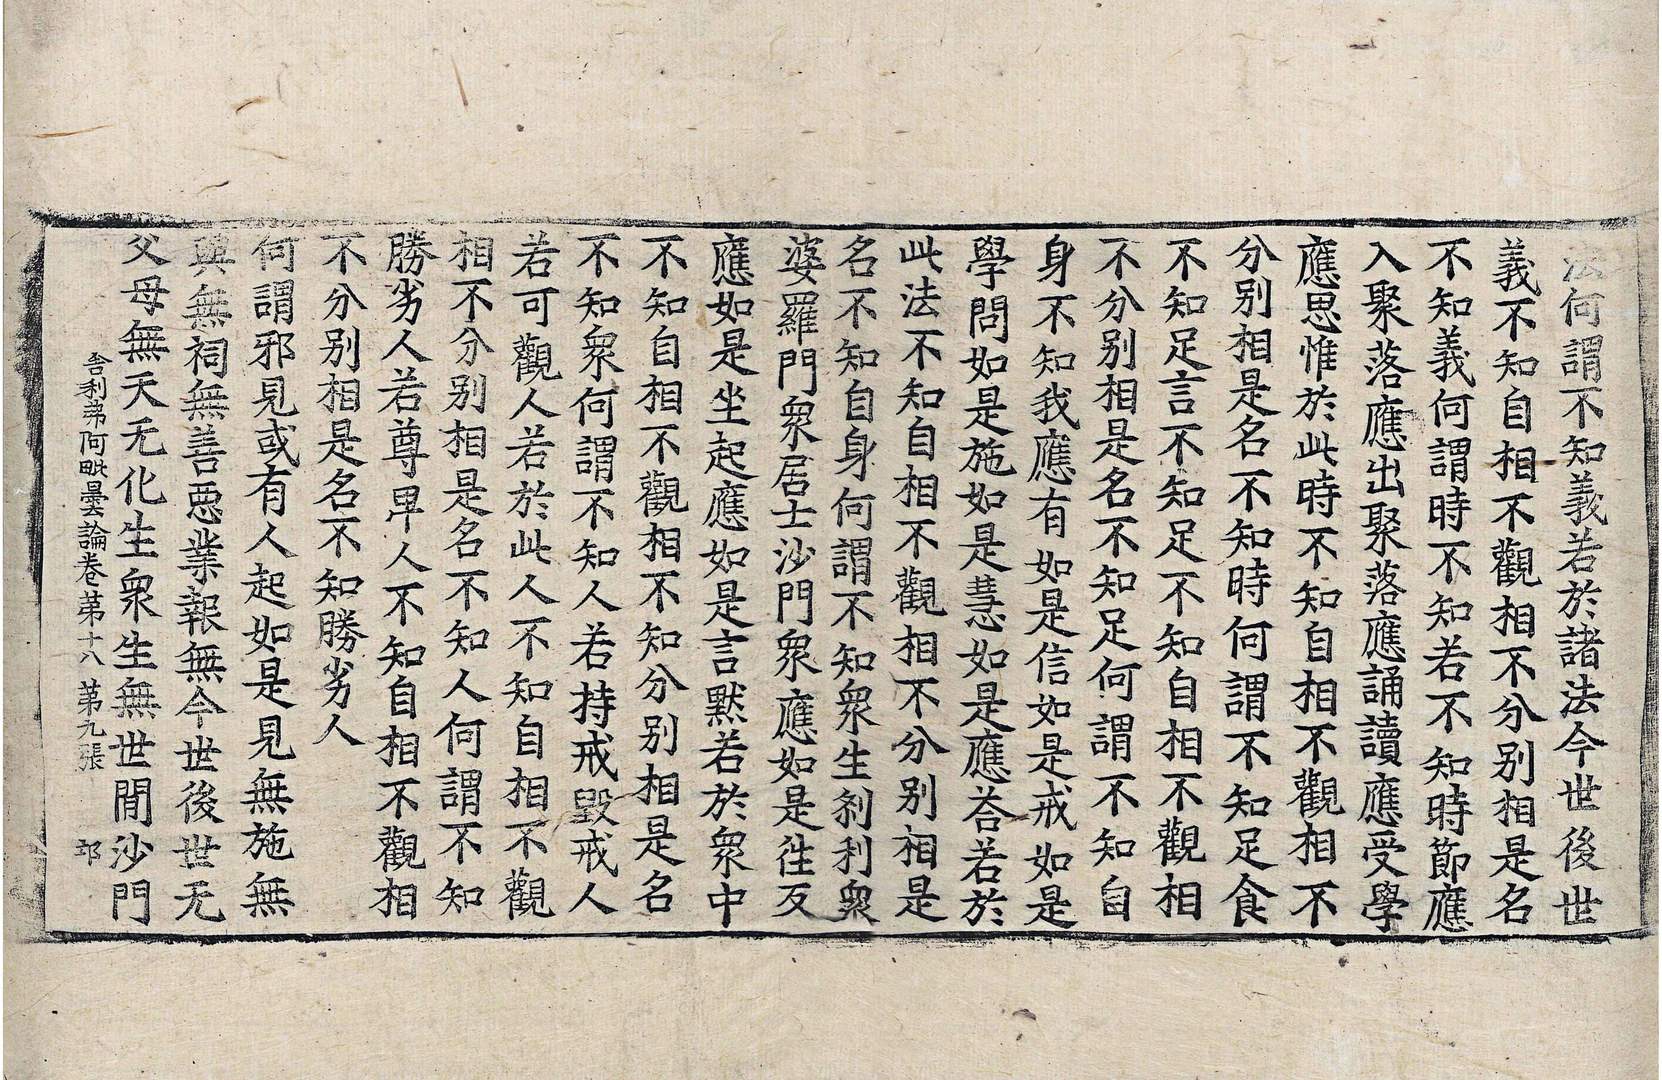 法何謂不知義若於諸法今世後世
義不知自相不觀相不分別相是名
不知義何謂時不知若不知時節應
入聚落應出聚落應誦讀應受學
應思惟於此時不知自相不觀相不
分別相是名不知時何謂不知足食
不知足言不知足不知自相不觀相
不分別相是名不知足何謂不知自
身不知我應有如是信如是戒如是
學問如是施如是慧如是應荅若於
此法不知自相不觀相不分別相是
名不知自身何謂不知衆生剎利衆
婆羅門衆居士沙門衆應如是徃反
應如是坐起應如是言默若於衆中
不知自相不觀相不知分別相是名
不知衆何謂不知人若持戒毀戒人
若可觀人若於此人不知自相不觀
相不分別相是名不知人何謂不知
勝劣人若尊卑人不知自相不觀相
不分別相是名不知勝劣人
何謂邪見或有人起如是見無施無
與無祠無善惡業報無今世後世无
父母無天无化生衆生無世間沙門
舎利弗阿毗曇論卷第十八 第九張 卭